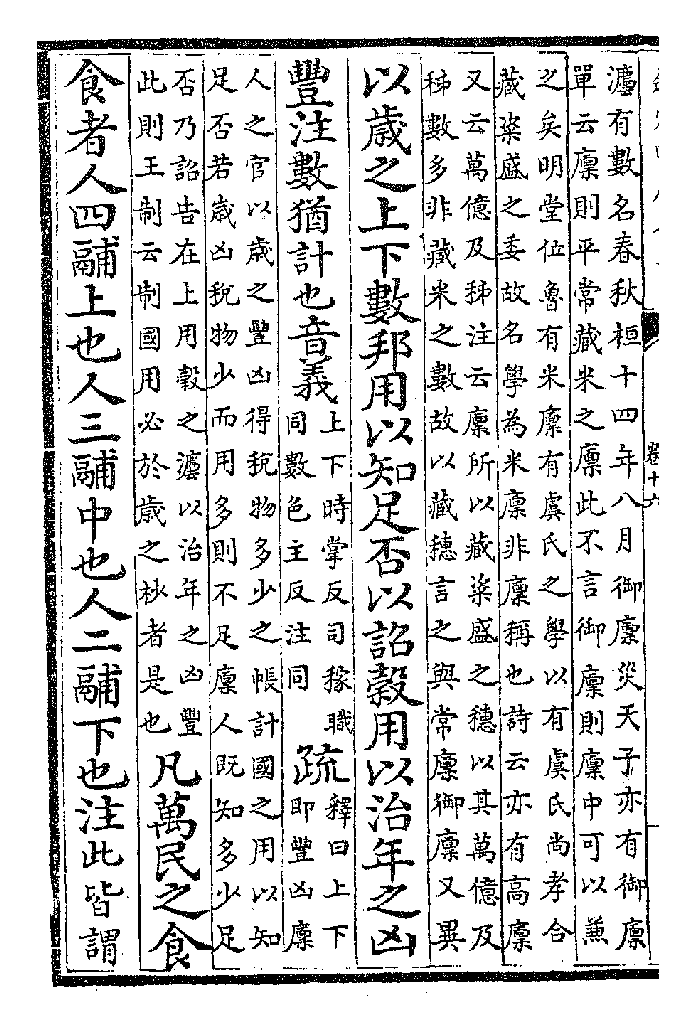 灋有數名春秋桓十四年八月御廪災天子亦有御廪
單云廪則平常藏米之廪此不言御廪則廪中可以兼
之矣明堂位魯有米廪有虞氏之學以有虞氏尚孝合
藏粢盛之委故名學為米廪非廪稱也詩云亦有高廪
又云萬億及秭注云廪所以藏粢盛之穗以其萬億及
秭數多非藏米之數故以藏穗言之與常廪御廪又異
以歲之上下數邦用以知足否以詔穀用以治年之凶
豐注數猶計也音義上下時掌反司稼職
同數色主反注同
疏釋曰上下
即豐凶廪
人之官以歲之豐凶得稅物多少之帳計國之用以知
足否若歲凶稅物少而用多則不足廪人既知多少足
否乃詔告在上用穀之灋以治年之凶豐
此則王制云制國用必於歲之杪者是也
凡萬民之食
食者人四鬴上也人三鬴中也人二鬴下也注此皆謂
卷十六